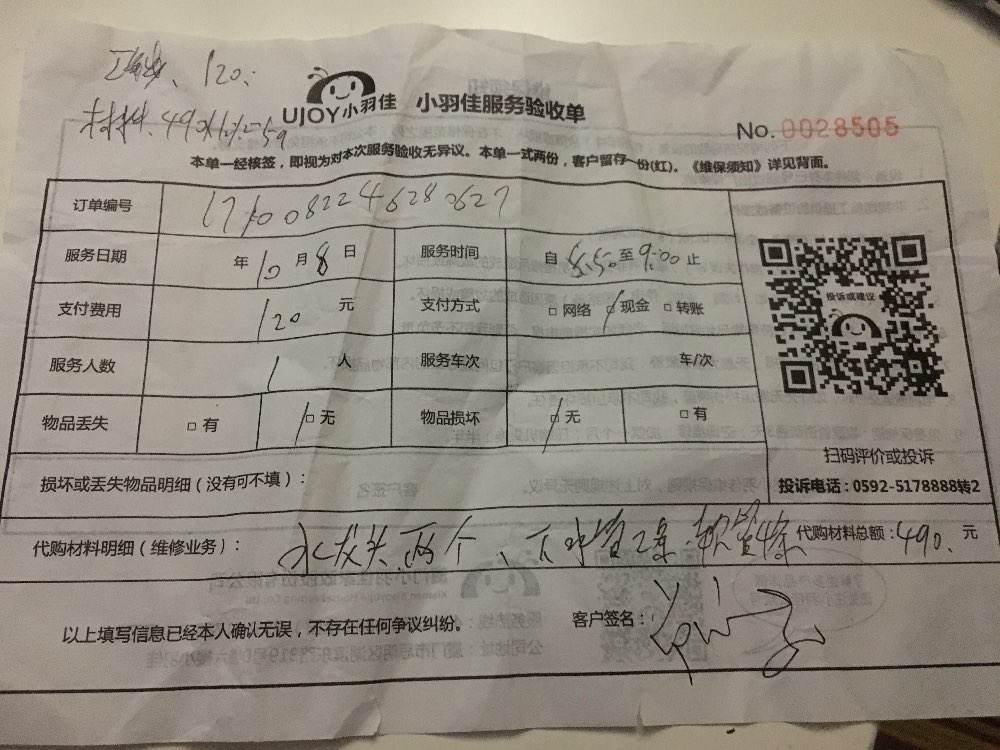 120.
UJOY小羽佳 小羽佳服务验收单
材料.490
No.0028505
本单一经核签，即视为对本次服务验收无异议。本单一式两份，客户留存一份(红)。《维保须知》详见背面。
订单编号
服务日期 年10月8日 服务时间 自8:50至9:00止
投诉或建议
支付费用 120元 支付方式 □网络 □现金 □转账
服务人数 1人 服务车次 车/次
物品丢失 □有 □无 物品损坏 □无 □有
扫码评价或投诉
损坏或丢失物品明细（没有可不填）：
投诉电话：0592-5178888转2
代购材料明细（维修业务）： 水龙头.两个、下水管2条.软管4条 代购材料总额：490.元
以上填写信息已经本人确认无误，不存在任何争议纠纷。 客户签名：